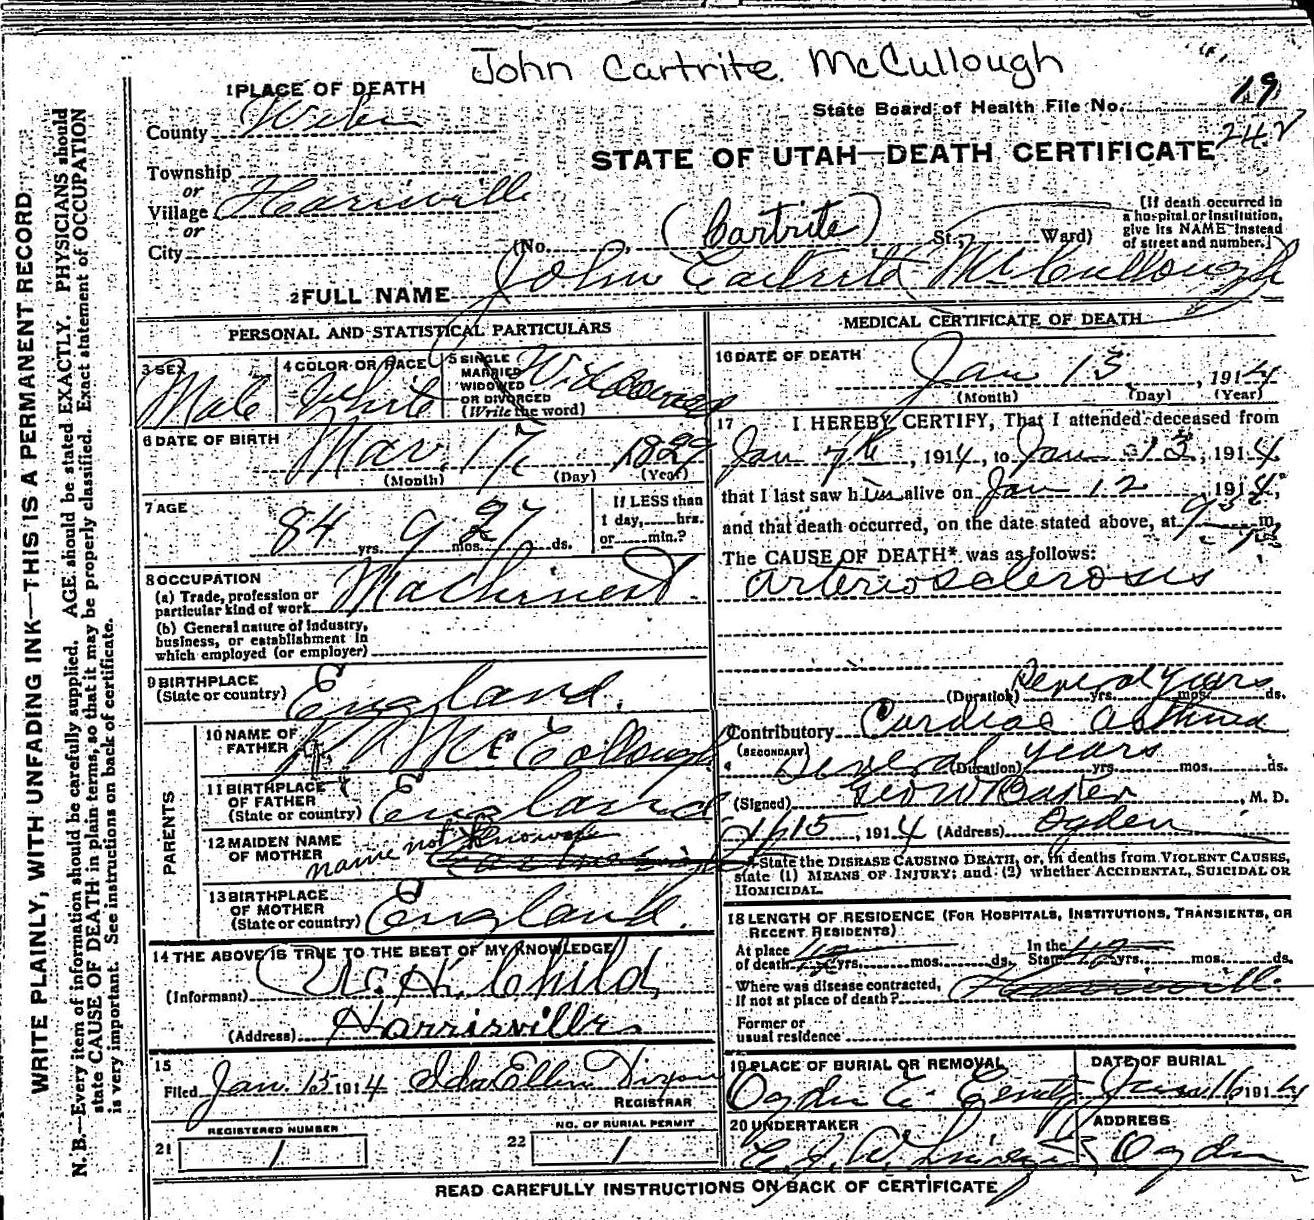 John Cartrite McCullough
1 PLACE OF DEATH
State Board of Health File No. 19
County Weber
242
STATE OF UTAH—DEATH CERTIFICATE
Township
or
Village Harisville
or
City
(No. , (Cartrite) St.; Ward)
[If death occurred in
a hospital or institution,
give its NAME instead
of street and number.]
2 FULL NAME John Cartrite McCullough
PERSONAL AND STATISTICAL PARTICULARS
3 SEX Male
4 COLOR OR RACE White
5 SINGLE
MARRIED
WIDOWED
OR DIVORCED
(Write the word) Widowed
6 DATE OF BIRTH
Mar. 17, 1829
(Month) (Day) (Year)
7 AGE
84 yrs. 9 mos. 27 ds.
If LESS than
1 day, hrs.
or min.?
8 OCCUPATION
(a) Trade, profession or
particular kind of work Machinest.
(b) General nature of industry,
business, or establishment in
which employed (or employer)
9 BIRTHPLACE
(State or country) England.
PARENTS
10 NAME OF
FATHER McCollough
11 BIRTHPLACE
OF FATHER
(State or country) England
12 MAIDEN NAME
OF MOTHER name not known
13 BIRTHPLACE
OF MOTHER
(State or country) England.
14 THE ABOVE IS TRUE TO THE BEST OF MY KNOWLEDGE
(Informant) W. H. Child
(Address) Harrisville
15
Filed Jan. 15 1914 Ida Ellen Dixon
REGISTRAR
21 REGISTERED NUMBER
1
22 NO. OF BURIAL PERMIT
1
MEDICAL CERTIFICATE OF DEATH
16 DATE OF DEATH
Jan 13, 1914
(Month) (Day) (Year)
17 I HEREBY CERTIFY, That I attended deceased from
Jan 7th, 1914, to Jan 13, 1914
that I last saw him alive on Jan 12, 1914,
and that death occurred, on the date stated above, at m.
The CAUSE OF DEATH* was as follows:
arteriosclerosis
(Duration) Several years yrs. mos. ds.
Contributory Cardiac asthma
(SECONDARY)
Several years (Duration) yrs. mos. ds.
(Signed) Geo W Baker, M. D.
1/15, 1914 (Address) Ogden
*State the DISEASE CAUSING DEATH, or, in deaths from VIOLENT CAUSES,
state (1) MEANS OF INJURY; and (2) whether ACCIDENTAL, SUICIDAL OR
HOMICIDAL.
18 LENGTH OF RESIDENCE (FOR HOSPITALS, INSTITUTIONS, TRANSIENTS, OR
RECENT RESIDENTS)
At place
of death yrs. mos. ds.
In the
State yrs. mos. ds.
Where was disease contracted,
if not at place of death?
Former or
usual residence
19 PLACE OF BURIAL OR REMOVAL
Ogden
DATE OF BURIAL
Jan 16 1914
20 UNDERTAKER
ADDRESS
Ogden
READ CAREFULLY INSTRUCTIONS ON BACK OF CERTIFICATE
WRITE PLAINLY, WITH UNFADING INK—THIS IS A PERMANENT RECORD
N. B.—Every item of information should be carefully supplied. AGE should be stated EXACTLY. PHYSICIANS should
state CAUSE OF DEATH in plain terms, so that it may be properly classified. Exact statement of OCCUPATION
is very important. See instructions on back of certificate.